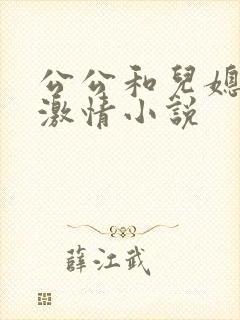 公公和兒媳
激情小説
薛江武